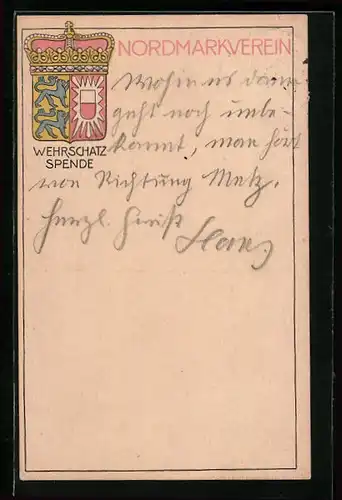 NORDMARKVEREIN
WEHRSCHATZ
SPENDE
Wohin es dann
geht noch unbe-
kannt, man hört
von Richtung Metz.
Herzl. Gruß
Hans